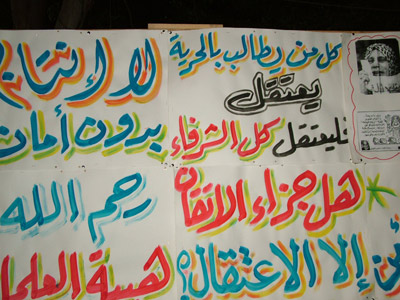 كل من يطالب بالحرية
يعتقل
فليعتقل كل الشرفاء
لا إنتاج
بدون أمان
هل جزاء الاتقان
إلا الاعتقال؟!
رحم الله
هيبة العلما